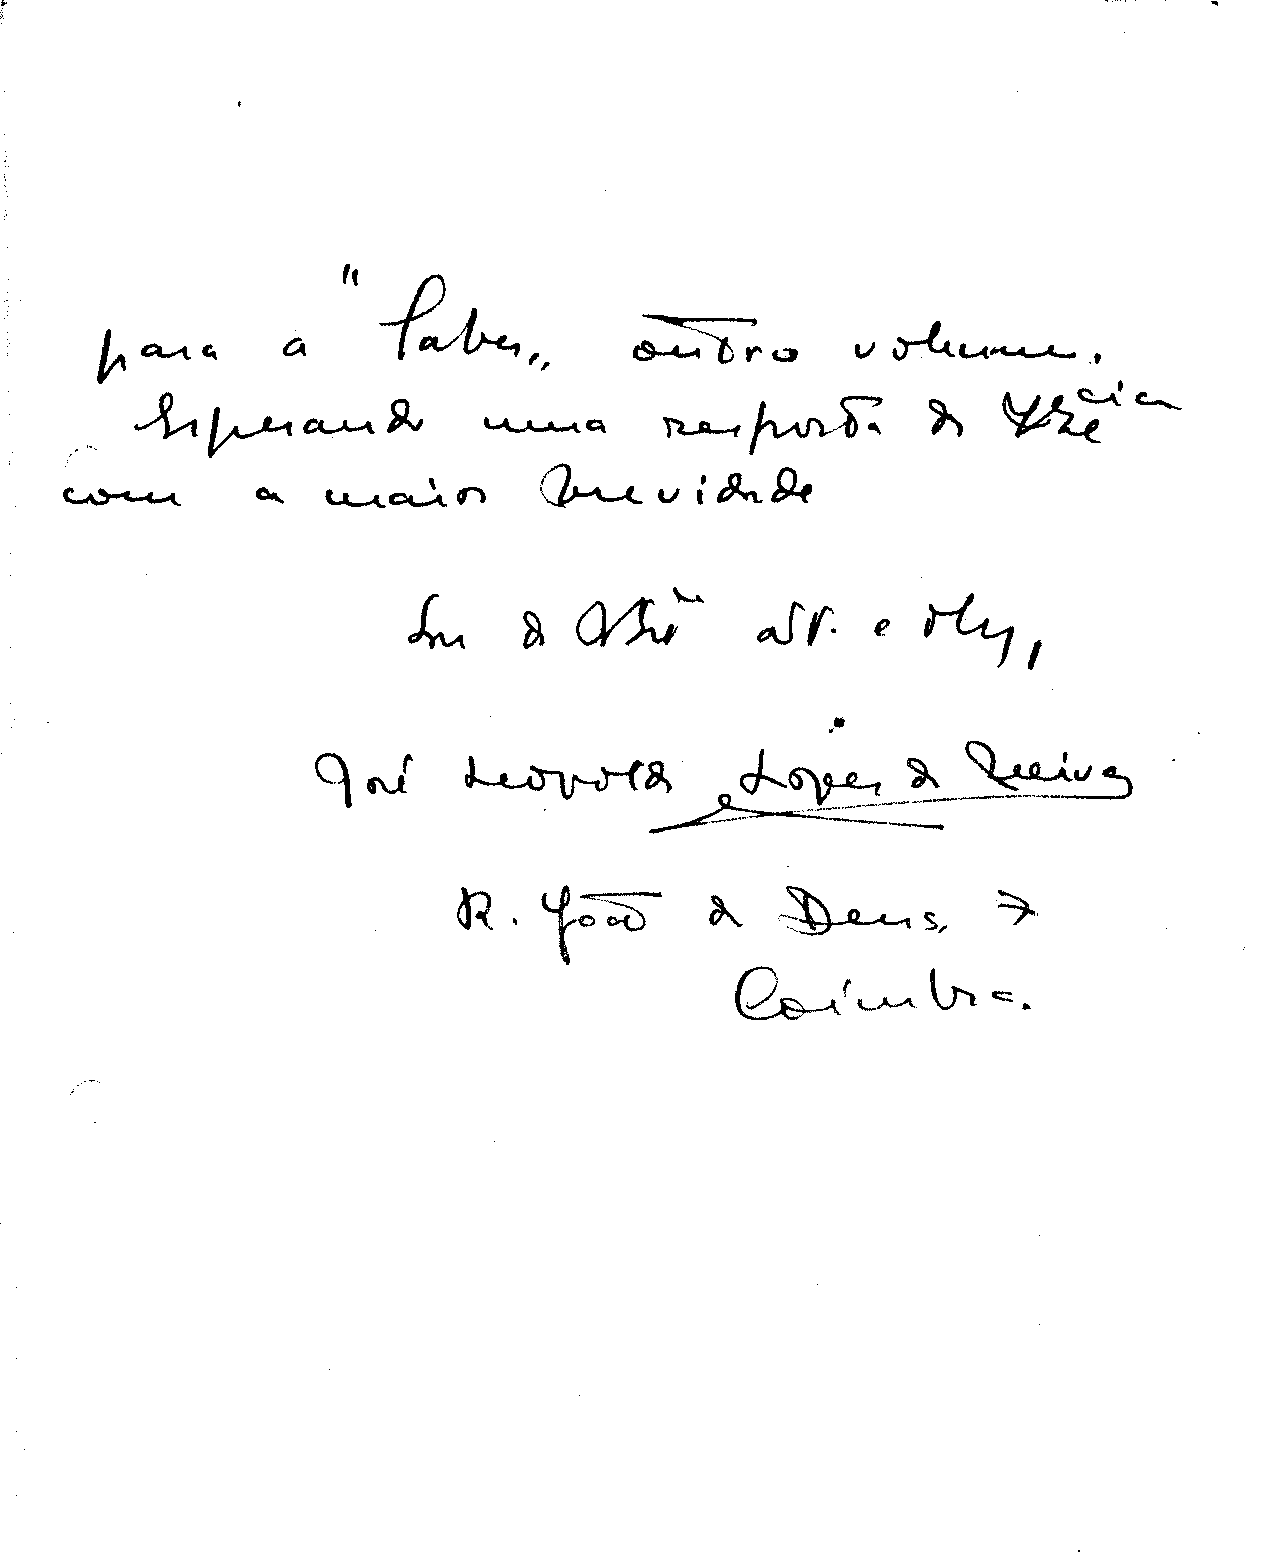 para a "Saber„ outro volume.
Esperando uma resposta de V. Ex.cia
com a maior brevidade
Sou de V. Ex.cia at.º e obg.,
José Leopoldo Lopes de Neiva
R. João de Deus, 7
Coimbra.